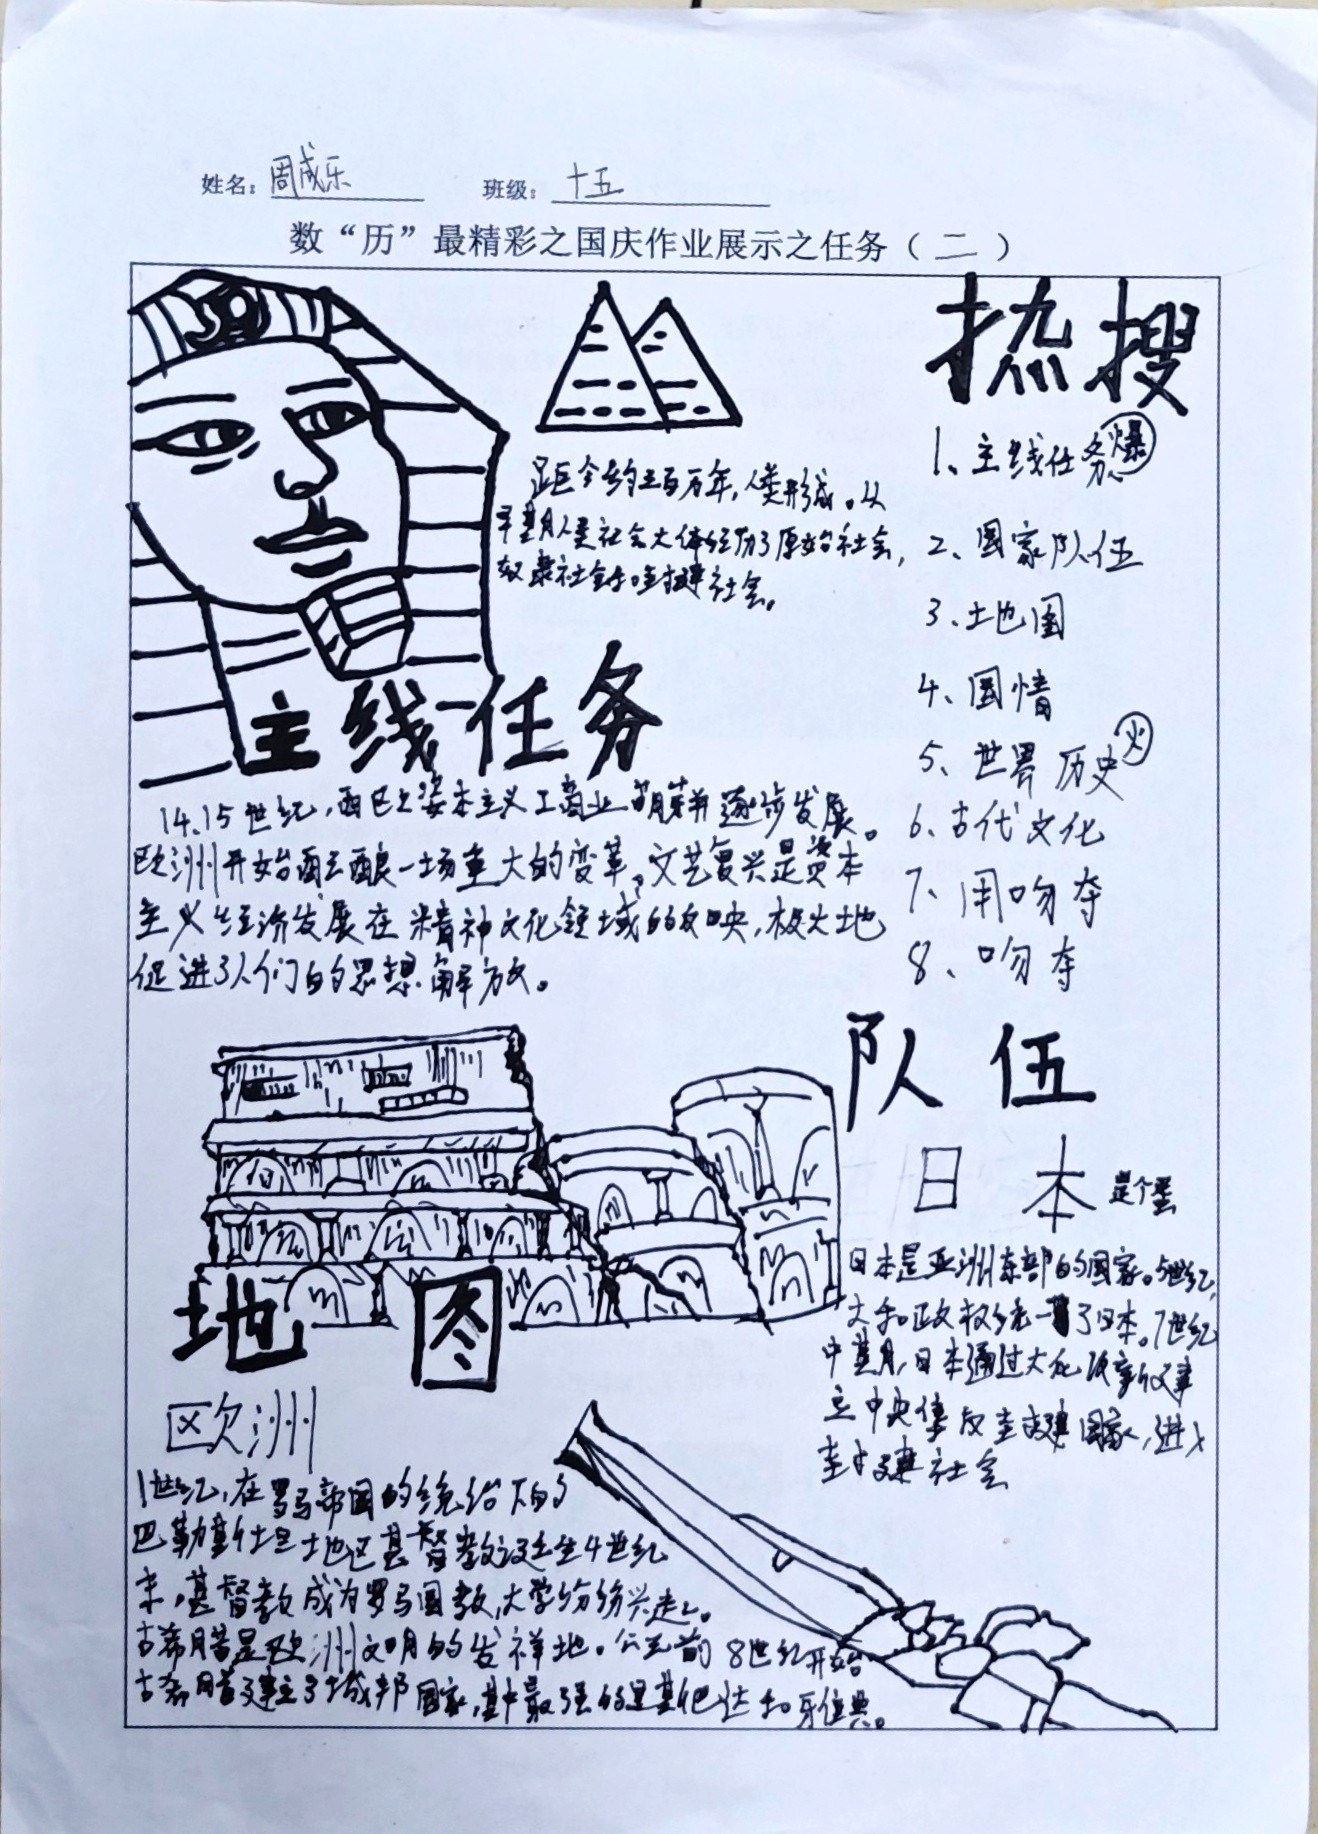 姓名：周成乐 班级：十五
数“历”最精彩之国庆作业展示之任务（二）
热搜
1、主线任务 爆
2、国家队伍
3、土地图
4、国情
5、世界历史 火
6、古代文化
7、用吻夺
8、吻夺
距今约三百万年，人类形成。从
早期人类社会大体经历了原始社会，
奴隶社会和封建社会。
主线任务
14、15世纪，西巴之资本主义工商业萌芽并逐步发展。
欧洲开始酝酿一场重大的变革，文艺复兴是资本
主义经济发展在精神文化领域的反映，极大地
促进了人们的思想解放。
队伍
日本 是个
日本是亚洲东部的国家。5世纪，
大和政权统一了日本。7世纪
中期，日本通过大化改新建
立中央集权封建国家，进入
封建社会
地图
欧洲
1世纪，在罗马帝国的统治下的
巴勒斯坦地区基督教诞生4世纪
末，基督教成为罗马国教，大学纷纷兴起。
古希腊是欧洲文明的发祥地。公元前8世纪开始
古希腊建立了城邦国家，其中最强的是斯巴达和雅典。